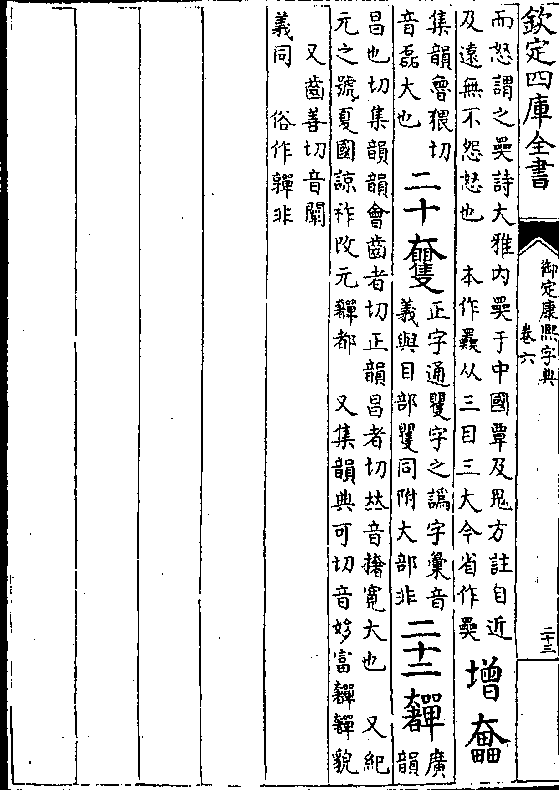 欽定四庫全書
御定康熙字典
卷六
二十三
而怒謂之奰詩大雅内奰于中國覃及鬼方註自近
及遠無不怨怒也　本作从三目三大今省作奰
增
集韻魯猥切
音磊大也
二十
正字通矍字之譌字彙音
義與目部矍同附大部非
二十二
奲
廣
韻
昌也切集韻韻會齒者切正韻昌者切𠀤音撦寛大也　又紀
元之號夏國諒祚改元奲都　又集韻典可切音姼富奲奲貌
又齒善切音闡
義同　俗作非